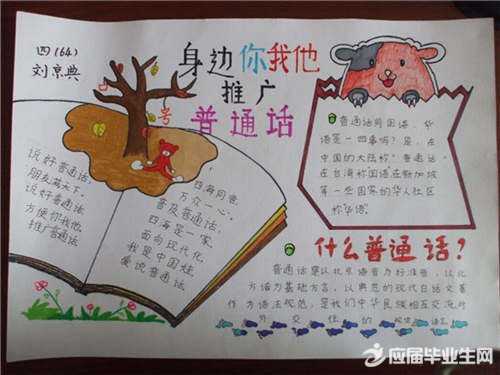 四(64)
刘京典
身边你我他
推广
普通话
说好普通话,
朋友满天下,
说好普通话
方便你我他
推广普通话
四海同音,
万众一心,
普及普通话,
四海是一家,
面向现代化,
我是中国娃,
爱说普通话
普通话同国语、华
语是一回事吗?是,在
中国的大陆称"普通话,在
在台湾称国语在新加坡
等一些国家的华人社区
称华语。
什么普通话?
普通话是以北京语音为标准音,以北
方话为基础方言,以典范的现代白话文著
作为语法规范,是我们中华民族相互交流对
外交往的
应届毕业生网